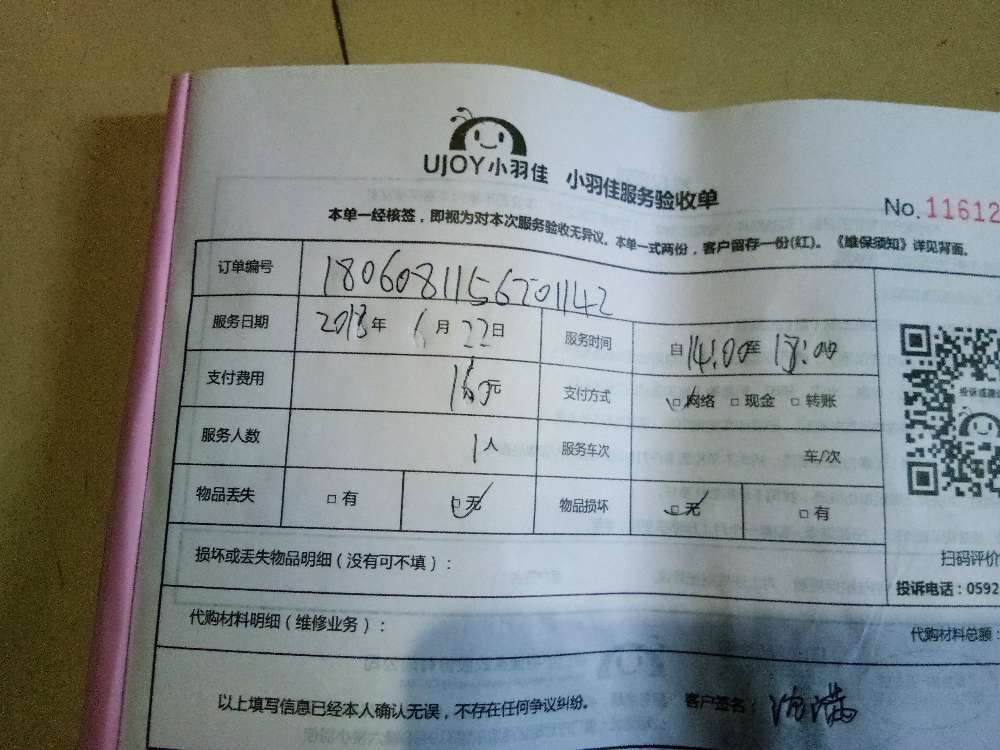 UJOY小羽佳 小羽佳服务验收单
No. 11612
本单一经核签，即视为对本次服务验收无异议。本单一式两份，客户留存一份(红)。《维保须知》详见背面。
订单编号 1806081156201142
服务日期 2018年 6月 22日 服务时间 自14:00至
支付费用 元 支付方式 □网络 □现金 □转账
服务人数 1人 服务车次 车/次
物品丢失 □有 □无 物品损坏 □无 □有
扫码评价
损坏或丢失物品明细（没有可不填）：
投诉电话：0592
代购材料明细（维修业务）：
代购材料总额：
以上填写信息已经本人确认无误，不存在任何争议纠纷。 客户签名：